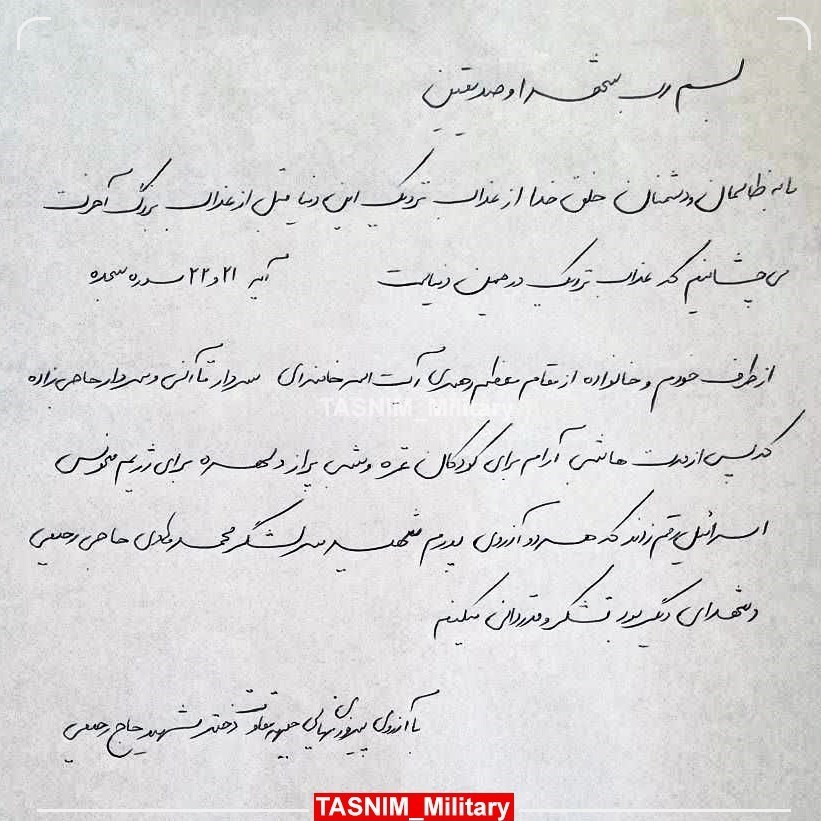 بسم رب شهدا و صدیقین
ما به ظالمان و دشمنان خلق خدا از عذاب نزدیک این دنیا قبل از عذاب بزرگ آخرت
می چشانیم که عذاب نزدیک در همین دنیاست آیه ۲۱ و ۲۲ سوره سجده
از طرف خودم و خانواده از مقام معظم رهبری آیت الله خامنه‌ای سردار قاآنی و سردار حاجی زاده
TASNIM_Military
که پس از مدت ها شبی آرام برای کودکان غزه و شبی پر از دلهره برای رژیم منحوس
اسرائیل رقم زدند که هر دو آرزوی پدرم شهید سرلشگر محمد هادی حاجی رحیمی
و شهدای دیگر بود تشکر و قدردانی میکنیم
با آرزوی پیروزی نهایی جبهه مقاومت دختر شهید حاج رحیمی
TASNIM_Military